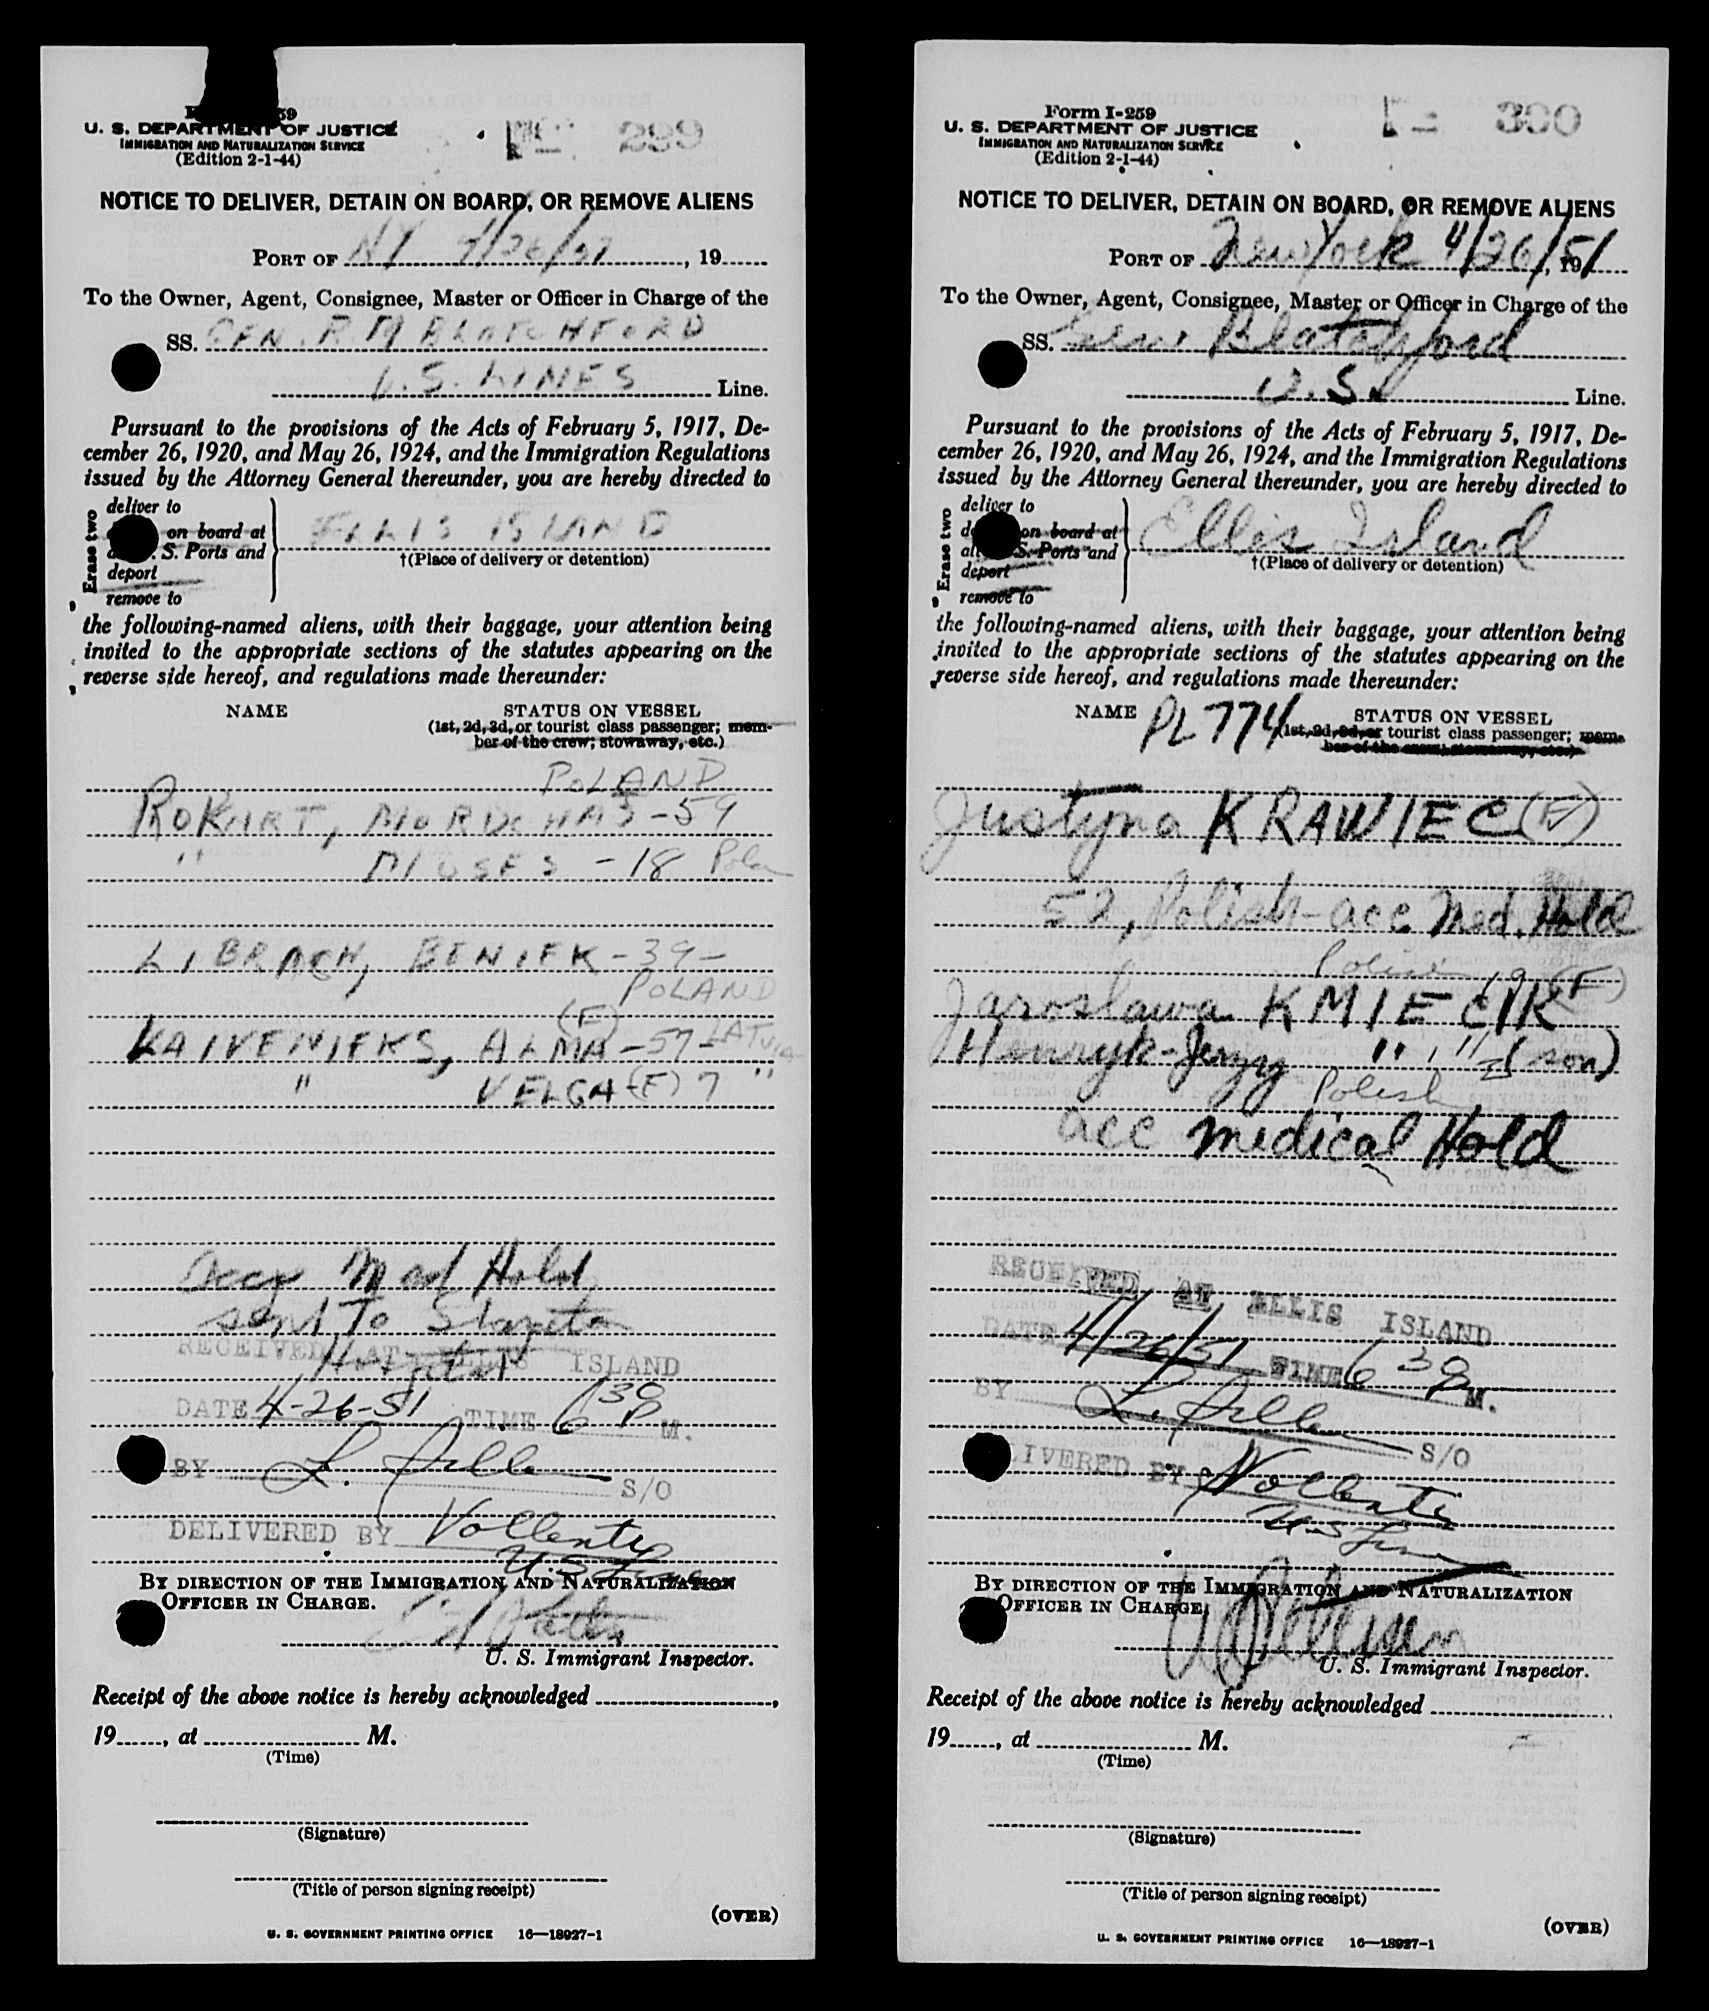 59
U. S. DEPARTMENT OF JUSTICE
IMMIGRATION AND NATURALIZATION SERVICE
(Edition 2-1-44)
299
NOTICE TO DELIVER, DETAIN ON BOARD, OR REMOVE ALIENS
PORT OF NY 4/26/51, 19
To the Owner, Agent, Consignee, Master or Officer in Charge of the
SS. GEN. R M BLATCHFORD
U.S. LINES Line.
Pursuant to the provisions of the Acts of February 5, 1917, De-
cember 26, 1920, and May 26, 1924, and the Immigration Regulations
issued by the Attorney General thereunder, you are hereby directed to
Erase two
deliver to
on board at
S. Ports and
deport
remove to
ELLIS ISLAND
†(Place of delivery or detention)
the following-named aliens, with their baggage, your attention being
invited to the appropriate sections of the statutes appearing on the
reverse side hereof, and regulations made thereunder:
NAME STATUS ON VESSEL
(1st, 2d, 3d, or tourist class passenger; mem-
ber of the crew; stowaway, etc.)
POLAND
ROKART, MORDCHAJ - 59
" MOSES - 18
LIBRACH, BENIEK - 39 -
POLAND
(F)
KAIVENIEKS, ALMA - 57 - LATVIA
" VELGA (F) 7 "
Accy Med Hold
sent To
Hospital
RECEIVED AT ELLIS ISLAND
DATE 4-26-51 TIME 6 30 P M.
BY L. S/O
DELIVERED BY Vollenty
U.S. Lines
BY DIRECTION OF THE IMMIGRATION AND NATURALIZATION
OFFICER IN CHARGE.
U. S. Immigrant Inspector.
Receipt of the above notice is hereby acknowledged ,
19, at M.
(Time)
(Signature)
(Title of person signing receipt)
(OVER)
U. S. GOVERNMENT PRINTING OFFICE 16—18927-1
Form I-259
U. S. DEPARTMENT OF JUSTICE
IMMIGRATION AND NATURALIZATION SERVICE
(Edition 2-1-44)
300
NOTICE TO DELIVER, DETAIN ON BOARD, OR REMOVE ALIENS
PORT OF New York 4/26/51, 19
To the Owner, Agent, Consignee, Master or Officer in Charge of the
SS. Gen. Blatchford
U.S. Line.
Pursuant to the provisions of the Acts of February 5, 1917, De-
cember 26, 1920, and May 26, 1924, and the Immigration Regulations
issued by the Attorney General thereunder, you are hereby directed to
Erase two
deliver to
on board at
S. Ports and
deport
remove to
Ellis Island
†(Place of delivery or detention)
the following-named aliens, with their baggage, your attention being
invited to the appropriate sections of the statutes appearing on the
reverse side hereof, and regulations made thereunder:
NAME PL 774 STATUS ON VESSEL
(1st, 2d, 3d, or tourist class passenger; mem-
ber of the crew; stowaway, etc.)
Justyna KRAWIEC (F)
52, Polish - acc Med. Hold
Polish 19 (F)
Jaroslawa KMIECIK
Henryk-Jerzy " , " (son)
Polish
acc medical Hold
RECEIVED AT ELLIS ISLAND
DATE 4/26/51 TIME 6 30 P M.
BY L. S/O
LIVERED BY Vollenty
U.S. Lines
BY DIRECTION OF THE IMMIGRATION AND NATURALIZATION
OFFICER IN CHARGE
U. S. Immigrant Inspector.
Receipt of the above notice is hereby acknowledged
19, at M.
(Time)
(Signature)
(Title of person signing receipt)
(OVER)
U. S. GOVERNMENT PRINTING OFFICE 16—18927-1